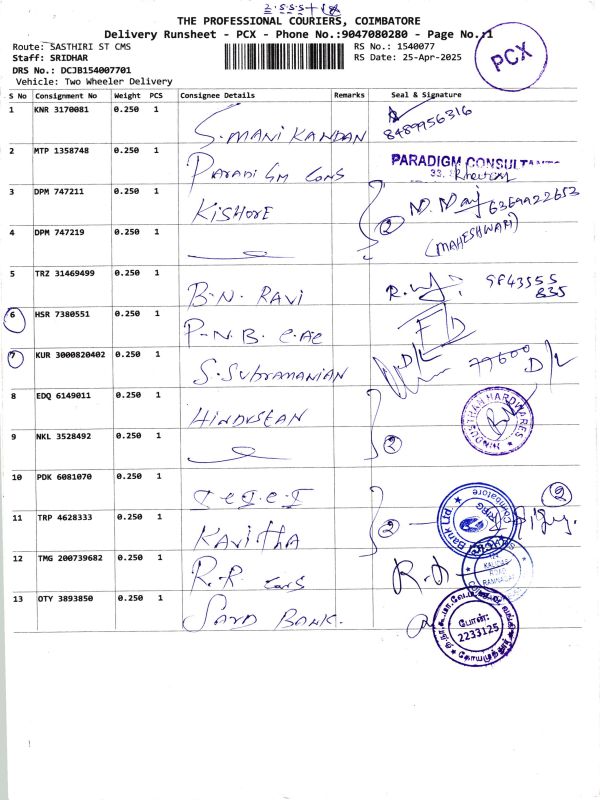 THE PROFESSIONAL COURIERS, COIMBATORE
Delivery Runsheet - PCX - Phone No.:9047080280 - Page No.:1
PCX
Route: SASTHIRI ST CMS
RS No.: 1540077
Staff: SRIDHAR
RS Date: 25-Apr-2025
DRS No.: DCJB154007701
Vehicle: Two Wheeler Delivery
S No Consignment No Weight PCS Consignee Details Remarks Seal & Signature
1 KNR 3170081 0.250 1 S. MANI KANDAN 8489956316
2 MTP 1358748 0.250 1 Paradigm Cons PARADIGM CONSULTANTS
3 DPM 747211 0.250 1 KISHORE 2 6369922653
(MAHESHWARI)
4 DPM 747219 0.250 1
5 TRZ 31469499 0.250 1 B.N. RAVI 9843555
835
6 HSR 7380551 0.250 1 P.N.B.
7 KUR 3000820402 0.250 1 S. Subramanian D/L 77600 D/L
8 EDQ 6149011 0.250 1 HINDUSTAN HINDUSTHAN HARDWARES
9 NKL 3528492 0.250 1 2
10 PDK 6081070 0.250 1 2
11 TRP 4628333 0.250 1 Kavitha 2 Bank Ltd Coimbatore
12 TMG 200739682 0.250 1 R.R. Cons KALIDAS ROAD RAMNAGAR
13 OTY 3893850 0.250 1 BANK. போன்: 2233125 கோயமுத்தூர்